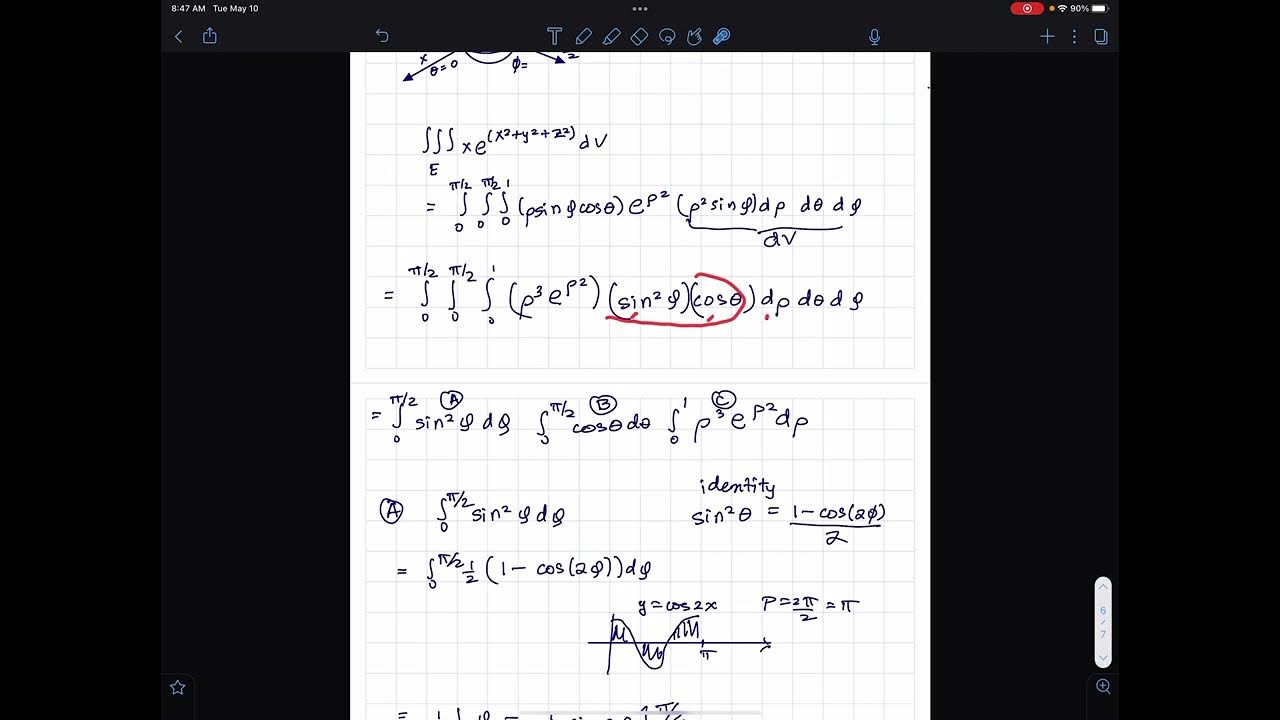 8:47 AM Tue May 10
90%
x
θ=0
φ=
∭ xe^(x²+y²+z²) dV
E
= ∫₀^π/2 ∫₀^π/2 ∫₀^1 (ρsinφcosθ) e^ρ² (ρ²sinφ)dρ dθ dφ
dV
= ∫₀^π/2 ∫₀^π/2 ∫₀^1 (ρ³e^ρ²) (sin²φ)(cosθ) dρ dθ dφ
A B C
= ∫₀^π/2 sin²φ dφ ∫₀^π/2 cosθ dθ ∫₀^1 ρ³e^ρ² dρ
identity
A ∫₀^π/2 sin²φ dφ sin²θ = 1-cos(2φ)/2
= ∫₀^π/2 1/2 (1 - cos(2φ))dφ
y=cos2x P=2π/2=π
π
6
/
7